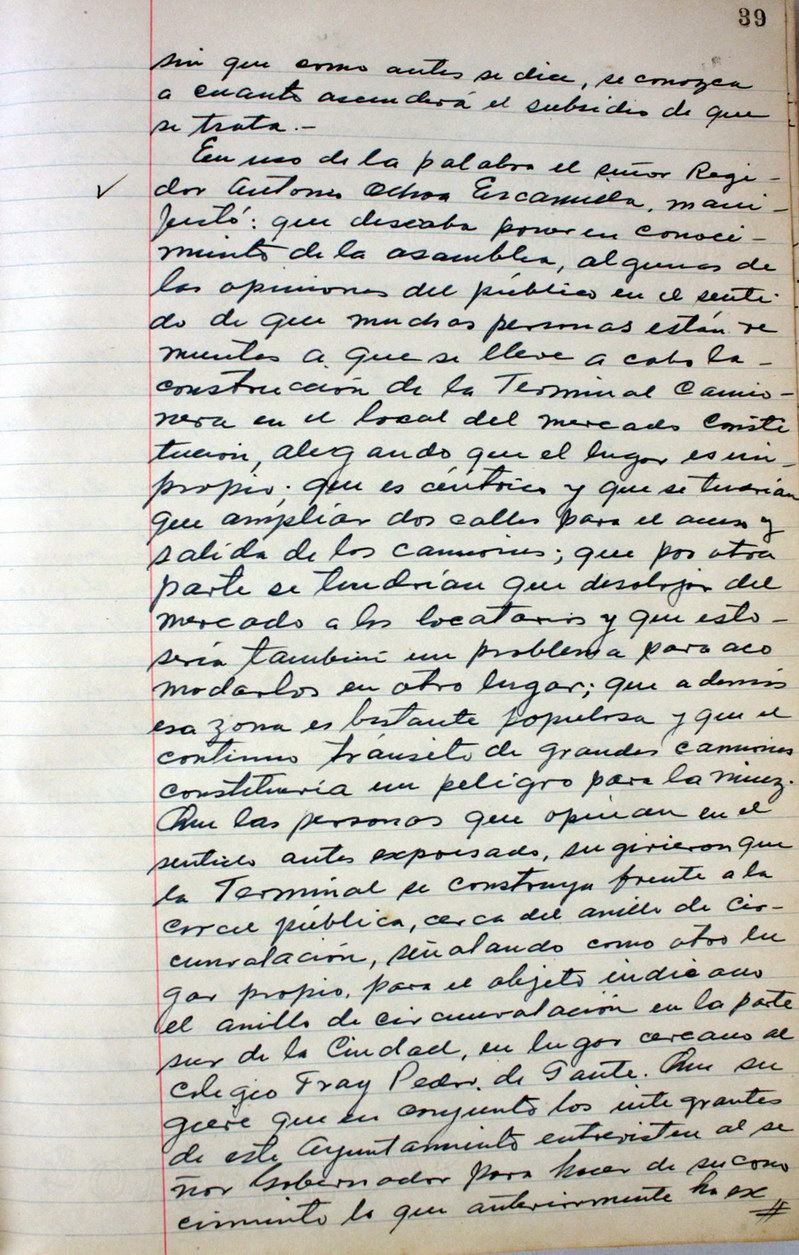 39
sin que como antes se dice, se conozca
a cuanto ascenderá el subsidio de que
se trata.-
En uso de la palabra el señor Regi-
dor Antonio Ochoa Escamilla, mani-
festó: que deseaba poner en conoci-
miento de la asamblea, algunas de
las opiniones del público en el senti-
do de que muchas personas están re
nuentes a que se lleve a cabo la-
construcción de la Terminal Camio-
nera en el local del mercado Consti
tución, alegando que el lugar es im-
propio; que es céntrico y que se tendrían
que ampliar dos calles para el acceso y
salida de los camiones; que por otra
parte se tendrían que desalojar del
mercado a los locatarios y que esto-
sería también un problema para aco
modarlos en otro lugar; que además
esa zona es bastante populosa y que el
continuo tránsito de grandes camiones
constituiría un peligro para la niñez.
Que las personas que opinan en el
sentido antes expresado, sugirieron que
la Terminal se construya frente a la
carcel pública, cerca del anillo de cir-
cunvalación, señalando como otro lu
gar propio, para el objeto indicado
el anillo de circunvalación en la parte
sur de la Ciudad, en lugar cercano al
colegio Fray Pedro de Gante. Que su
giere que en conjunto los integrantes
de este Ayuntamiento entrevisten al se
ñor Gobernador para hacer de su cono
cimiento lo que anteriormente ha ex